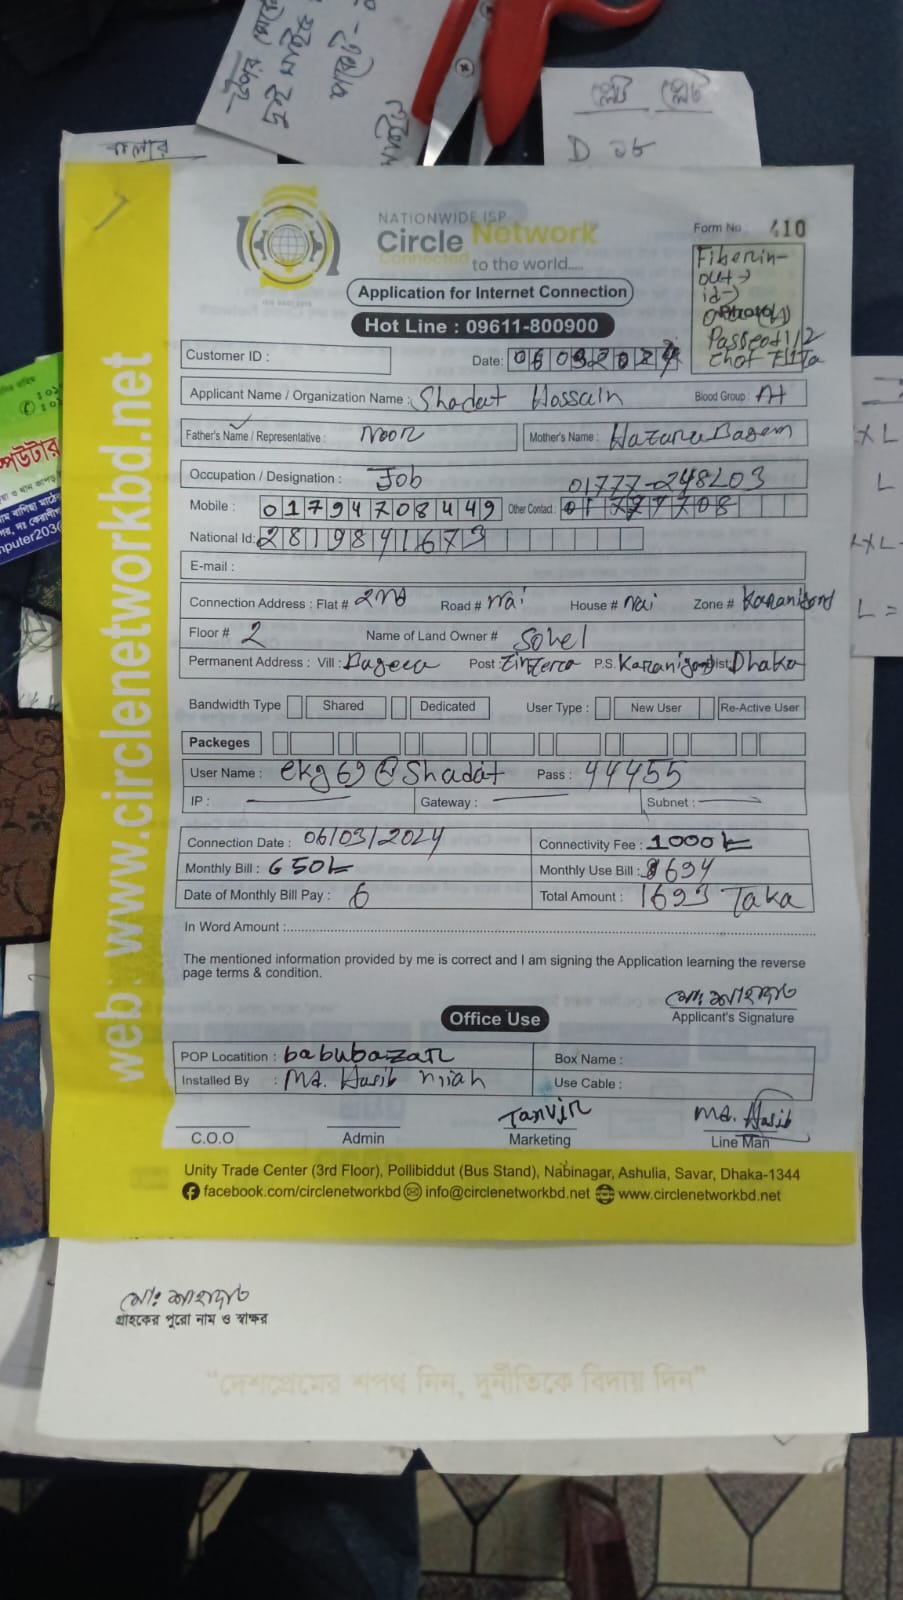 NATIONWIDE ISP
Circle Network
Connected to the world....
Application for Internet Connection
Hot Line : 09611-800900
Form No : 410
Fiber in-
out→
id→
Customer ID :
Date: 06032024
Applicant Name / Organization Name : Shadat Hossain Blood Group : A+
Father's Name / Representative : Noor Mother's Name : Hazara Bagem
Occupation / Designation : Job 01777-248203
Mobile : 01794708449 Other Contact :
National Id: 2819841673
E-mail :
Connection Address : Flat # 2nd Road # nai House # nai Zone #
Floor # 2 Name of Land Owner # Sohel
Permanent Address : Vill : Post : P.S. Dist: Dhaka
Bandwidth Type Shared Dedicated User Type : New User Re-Active User
Packeges
User Name : ekg69@Shadat Pass : 44455
IP : Gateway : Subnet :
Connection Date : 06/03/2024 Connectivity Fee : 1000৳
Monthly Bill : 650৳ Monthly Use Bill : 694
Date of Monthly Bill Pay : 6 Total Amount : 1693 Taka
In Word Amount :
The mentioned information provided by me is correct and I am signing the Application learning the reverse
page terms & condition.
মোঃ শাহাদাত
Applicant's Signature
Office Use
POP Locatition : babubazar Box Name :
Installed By : Md. Hasib miah Use Cable :
Tanvir Md. Hasib
C.O.O Admin Marketing Line Man
Unity Trade Center (3rd Floor), Pollibiddut (Bus Stand), Nabinagar, Ashulia, Savar, Dhaka-1344
facebook.com/circlenetworkbd info@circlenetworkbd.net www.circlenetworkbd.net
web : www.circlenetworkbd.net
মোঃ শাহাদাত
গ্রাহকের পুরো নাম ও স্বাক্ষর
"দেশপ্রেমের শপথ নিন, দুর্নীতিকে বিদায় দিন"